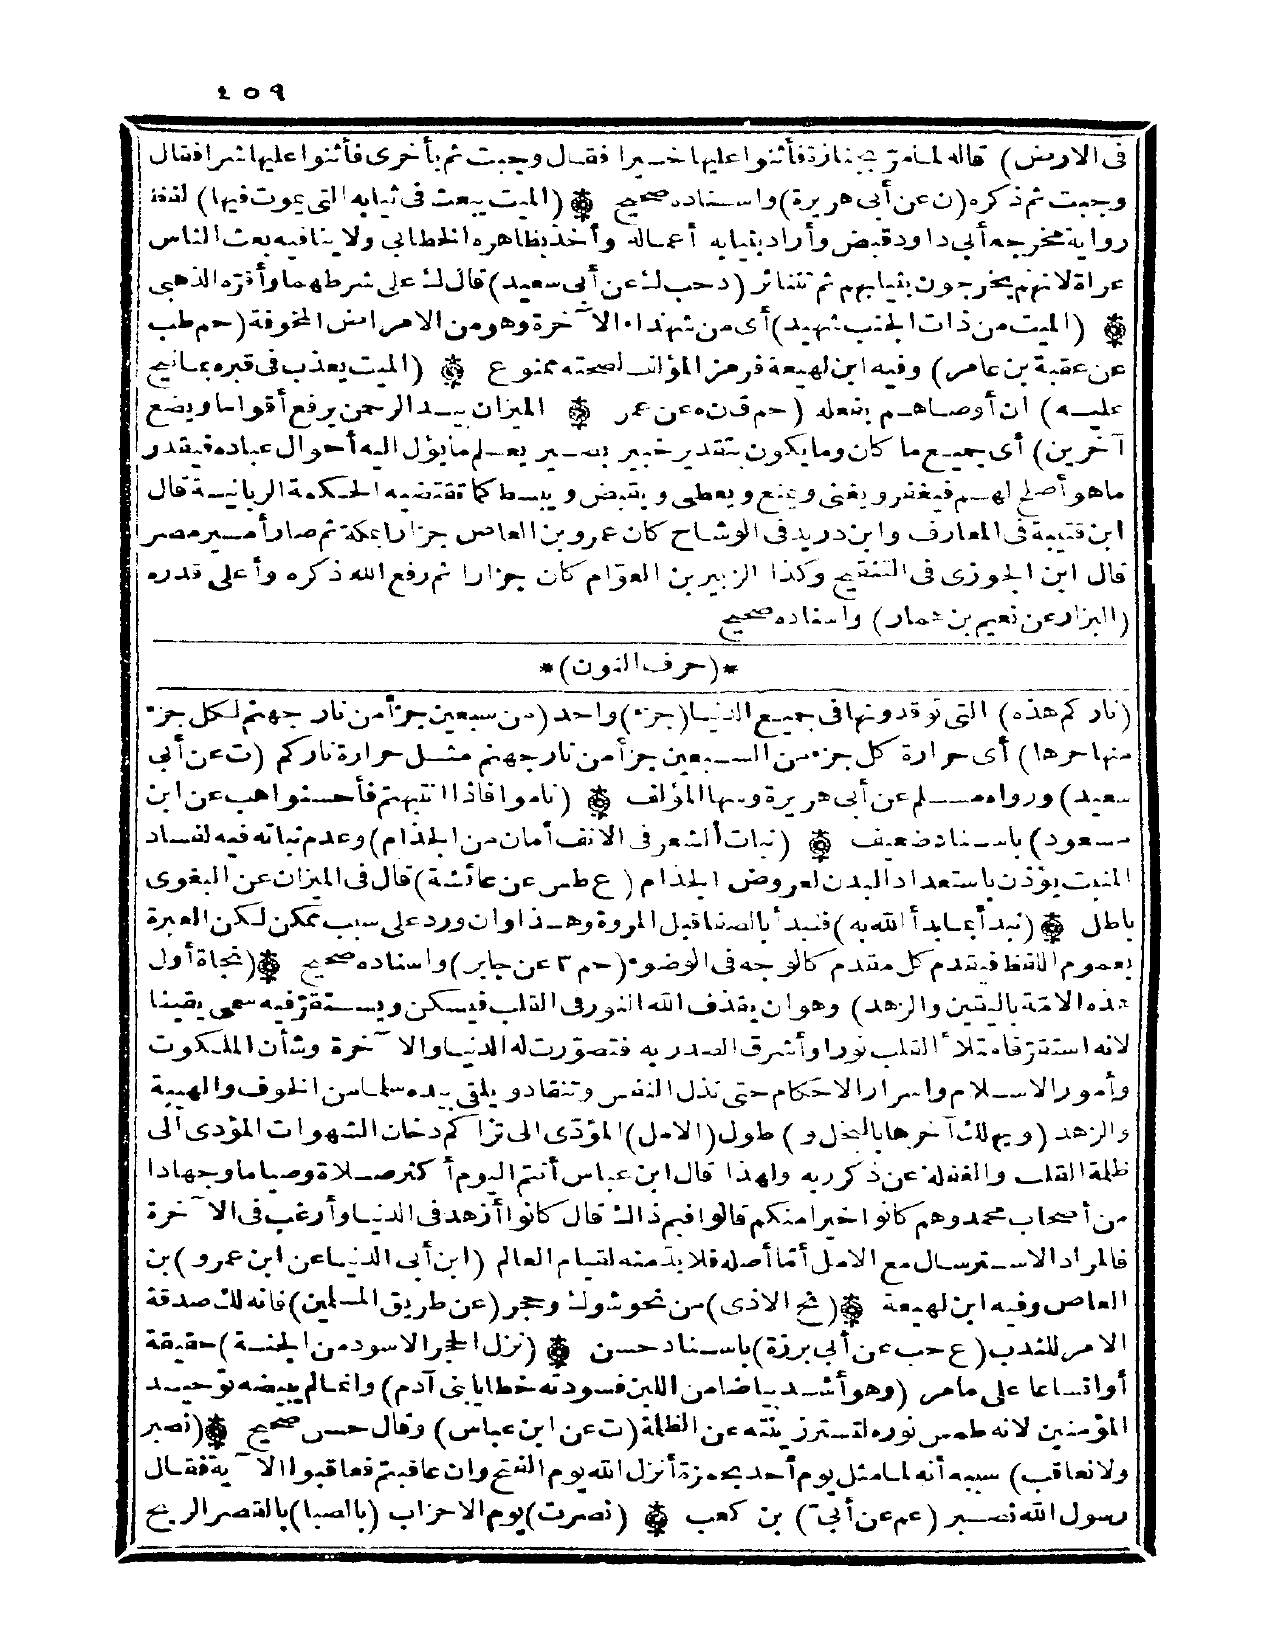 ٤٥٩
فى الارض) قاله لما مرّ بجنازة فأثنوا عليها خيرا فقال وجبت ثم بأخرى فأثنوا عليها شرا فقال
وجبت ثم ذكره (ن عن أبى هريرة) واسناده صحيح ۞ (الميت يبعث فى ثيابه التى يموت فيها) لفظ
رواية مخرجه أبى داود قبض وأراد بثيابه أعماله وأخذ بظاهره الخطابى ولا ينافيه بعث الناس
عراة لانهم يخرجون بثيابهم ثم تتناثر (د حب ك عن أبى سعيد) قال ك على شرطهما وأقره الذهبى
۞ (الميت من ذات الجنب شهيد) أى من شهداء الآخرة وهو من الامراض المخوفة (حم طب
عن عقبة بن عامر) وفيه ابن لهيعة فرمز المؤلف لصحته ممنوع ۞ (الميت يعذب فى قبره بما نيح
عليه) ان أوصاهم بفعله (حم ق ن ه عن عمر ۞ الميزان بيد الرحمن يرفع أقواما ويضع
آخرين) أى جميع ما كان وما يكون بتقدير خبير بصير يعلم ما يؤل اليه أحوال عباده فيقدر
ماهو أصلح لهم فيفقر ويغنى ويمنع ويعطى ويقبض ويبسط كما تقتضيه الحكمة الربانية قال
ابن قتيبة فى المعارف وابن دريد فى الوشاح كان عمرو بن العاص جزارا بمكة ثم صار أمير مصر
قال ابن الجوزى فى التنقيح وكذا الزبير بن العوّام كان جزارا ثم رفع الله ذكره وأعلى قدره
(البزار عن نعيم بن همار) واسناده صحيح
*(حرف النون)*
(ناركم هذه) التى توقدونها فى جميع الدنيا (جزء) واحد (من سبعين جزأ من نار جهنم لكل جزء
منها حرها) أى حرارة كل جزء من السبعين جزأ من نار جهنم مثل حرارة ناركم (ت عن أبى
سعيد) ورواه مسلم عن أبى هريرة وسها المؤلف ۞ (ناموا فاذا انتبهتم فأحسنوا هب عن ابن
مسعود) باسناد ضعيف ۞ (نبات الشعر فى الانف أمان من الجذام) وعدم نباته فيه لفساد
المنبت يؤذن باستعداد البدن لعروض الجذام (ع طس عن عائشة) قال فى الميزان عن البغوى
باطل ۞ (نبدأ بما بدأ الله به) فنبدأ بالصفا قبل المروة وهذا وان ورد على سبب ممكن لكن العبرة
بعموم اللفظ فيقدم كل مقدم كالوجه فى الوضوء (حم ٣ عن جابر) واسناده صحيح ۞ (نجاة أول
هذه الامّة باليقين والزهد) وهو ان يقذف الله النور فى القلب فيسكن ويستقرّ فيه سمى يقينا
لانه استقرّ فامتلأ القلب نورا وأشرق الصدر به فتصوّرت له الدنيا والآخرة وشأن الملكوت
وأمور الاسلام واسرار الاحكام حتى تذل النفس وتنقاد ويلقى بيده سلما من الخوف والهيبة
والزهد (ويهلك آخرها بالبخل و) طول (الامل) المؤدّى الى تراكم دخان الشهوات المؤدى الى
ظلمة القلب والغفلة عن ذكر ربه ولهذا قال ابن عباس أنتم اليوم أكثر صلاة وصياما وجهادا
من أصحاب محمد وهم كانوا خيرا منكم قالوا فيم ذاك قال كانوا أزهد فى الدنيا وأرغب فى الآخرة
فالمراد الاسترسال مع الامل أمّا أصله فلا بدّ منه لقيام العالم (ابن أبى الدنيا عن ابن عمرو) بن
العاص وفيه ابن لهيعة ۞ (نح الاذى) من نحو شوك وحجر (عن طريق المسلمين) فانه لك صدقة
الامر للندب (ع حب عن أبى برزة) باسناد حسن ۞ (نزل الحجر الاسود من الجنة) حقيقة
أو اتساعا على ما مر (وهو أشد بياضا من اللبن فسودته خطايا بنى آدم) وانما لم يبيضه توحيد
المؤمنين لانه طمس نوره لتستر زينته عن الظلمة (ت عن ابن عباس) وقال حسن صحيح ۞ (نصبر
ولا نعاقب) سببه أنه لما مثل يوم أحد بحمزة أنزل الله يوم الفتح وان عاقبتم فعاقبوا الآية فقال
رسول الله نصبر (عم عن أبىّ) بن كعب ۞ (نصرت) يوم الاحزاب (بالصبا) بالقصر الريح